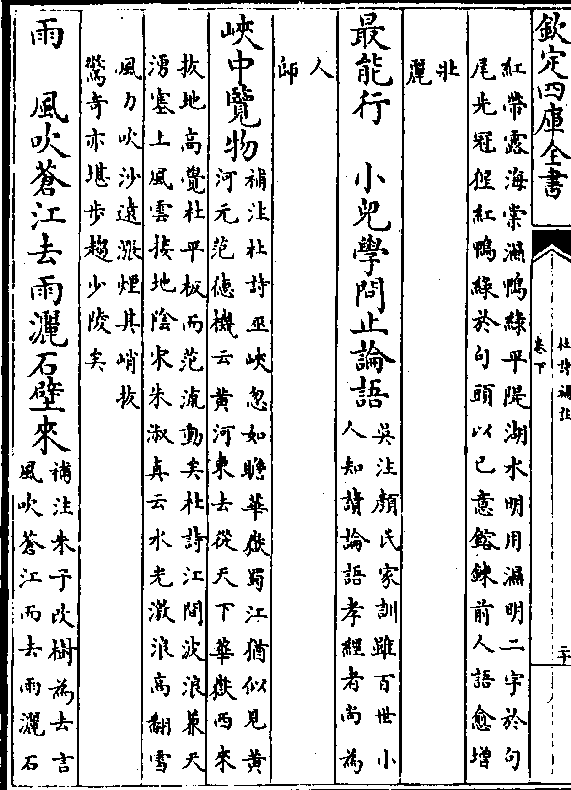 欽定四庫全書
杜詩補註
卷下
二十
紅帶露海棠濕鴨綠平隄湖水明用濕明二字於句
尾尤冠猩紅鴨綠於句頭以已意鎔鍊前人語愈增
壯
麗
最能行　小兒學問止論語
吳注顏氏家訓雖百世小
人知讀論語孝經者尚為
人
師
峽中覽物
補注杜詩巫峽忽如瞻華嶽蜀江猶似見黃
河元范德機云黃河東去從天下華嶽西來
拔地高覺杜平板而范流動矣杜詩江間波浪兼天
湧塞上風雲接地陰宋朱淑真云水光激浪高翻雪
風力吹沙遠漲煙其峭拔
驚奇亦堪步趨少陵矣
雨　風吹蒼江去雨灑石壁來
補注朱子改樹為去言
風吹蒼江而去雨灑石